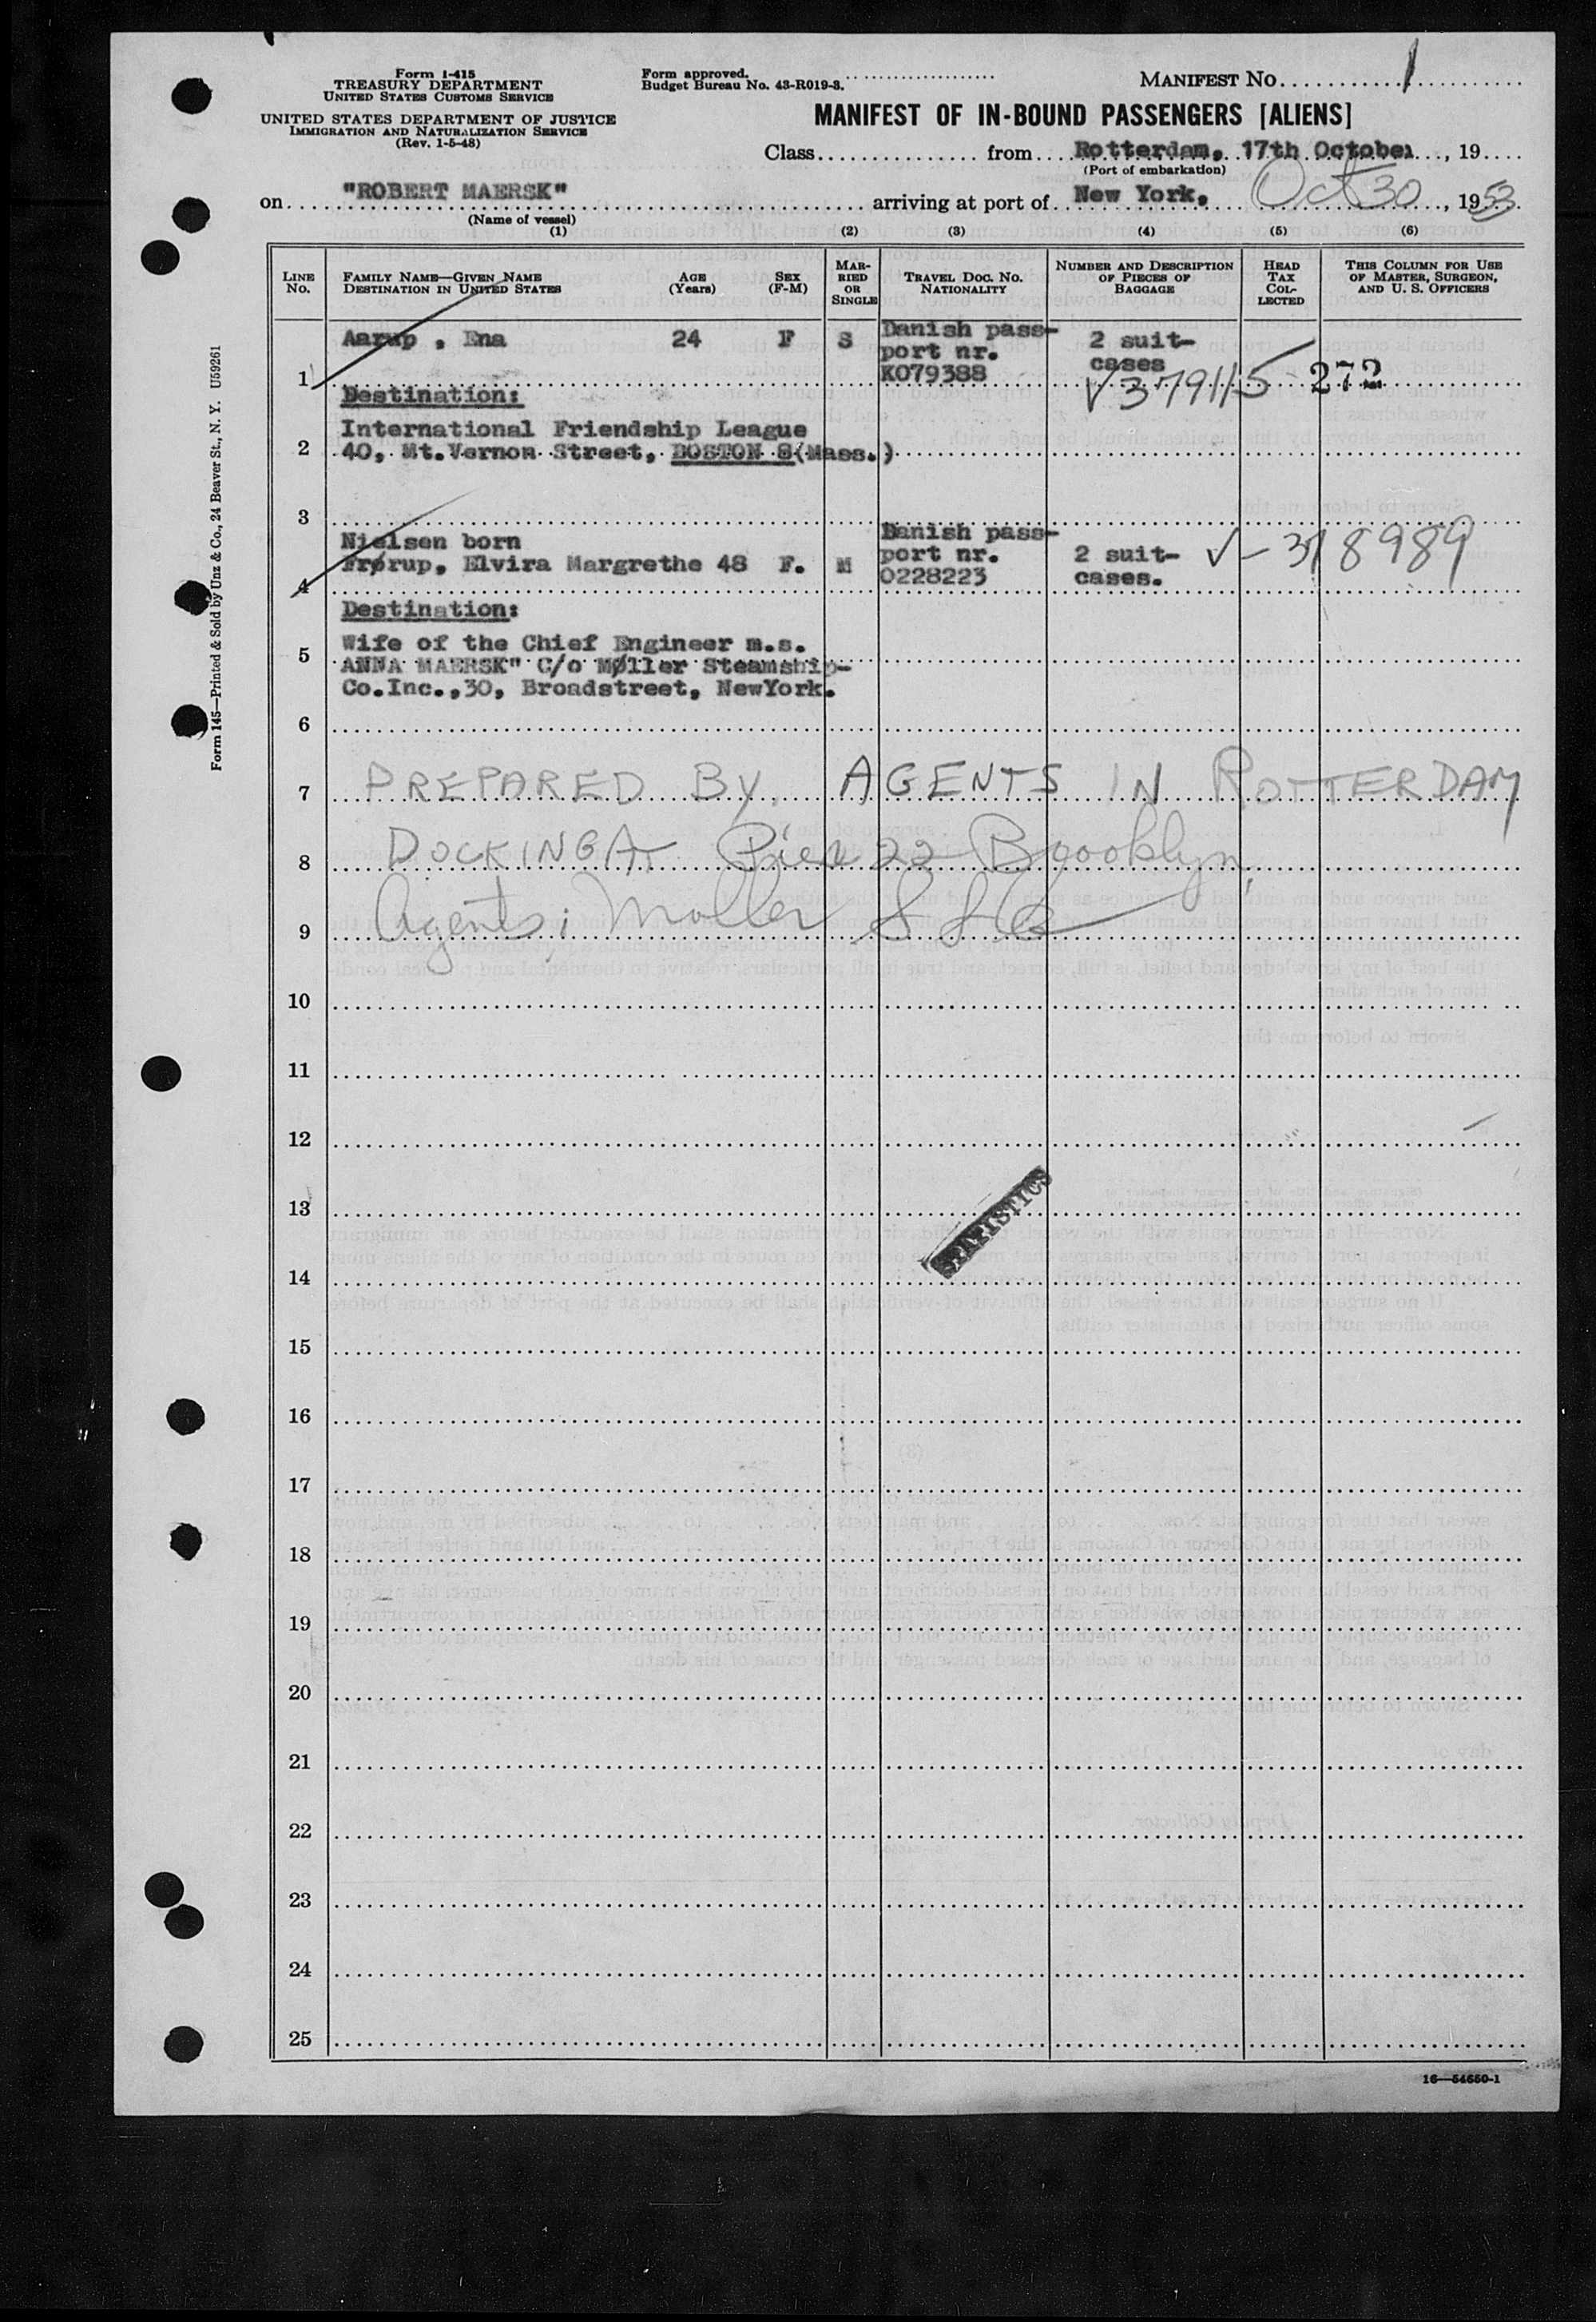 Form I-415
TREASURY DEPARTMENT
UNITED STATES CUSTOMS SERVICE
UNITED STATES DEPARTMENT OF JUSTICE
IMMIGRATION AND NATURALIZATION SERVICE
(Rev. 1-5-48)
Form approved.
Budget Bureau No. 43-R019-3.
MANIFEST NO. 1
MANIFEST OF IN-BOUND PASSENGERS [ALIENS]
Class from Rotterdam, 17th October, 19
(Port of embarkation)
on "ROBERT MAERSK" arriving at port of New York, Oct 30, 1953
(Name of vessel)
(1) (2) (3) (4) (5) (6)
LINE NO. FAMILY NAME—GIVEN NAME DESTINATION IN UNITED STATES AGE (Years) SEX (F-M) MARRIED OR SINGLE TRAVEL DOC. NO. NATIONALITY NUMBER AND DESCRIPTION OF PIECES OF BAGGAGE HEAD TAX COLLECTED THIS COLUMN FOR USE OF MASTER, SURGEON, AND U. S. OFFICERS
Aarup , Ena 24 F S Danish pass- 2 suit-
port nr. cases
1 K079388 √379115 272
Destination:
International Friendship League
2 40, Mt.Vernon Street, BOSTON 8(Mass.)
3
Nielsen born Danish pass-
Frørup, Elvira Margrethe 48 F. M port nr. 2 suit- √-378989
4 0228223 cases.
Destination:
Wife of the Chief Engineer m.s.
5 ANNA MAERSK" C/o Møller Steamship-
Co.Inc.,30, Broadstreet, NewYork.
6
7 PREPARED BY AGENTS IN ROTTERDAM
8 DOCKING AT Pier 22 Brooklyn,
9 Agents; Moller S S Co
10
11
12
13
STATISTICS
14
15
16
17
18
19
20
21
22
23
24
25
16—54650-1
Form 145—Printed & Sold by Unz & Co., 24 Beaver St., N. Y. U59261